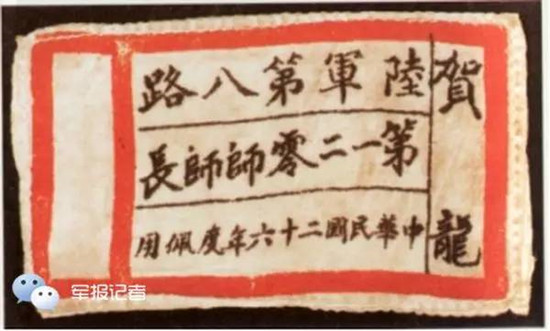 賀龍
陸軍第八路
第一二零師師長
中華民國二十六年度佩用
军报记者